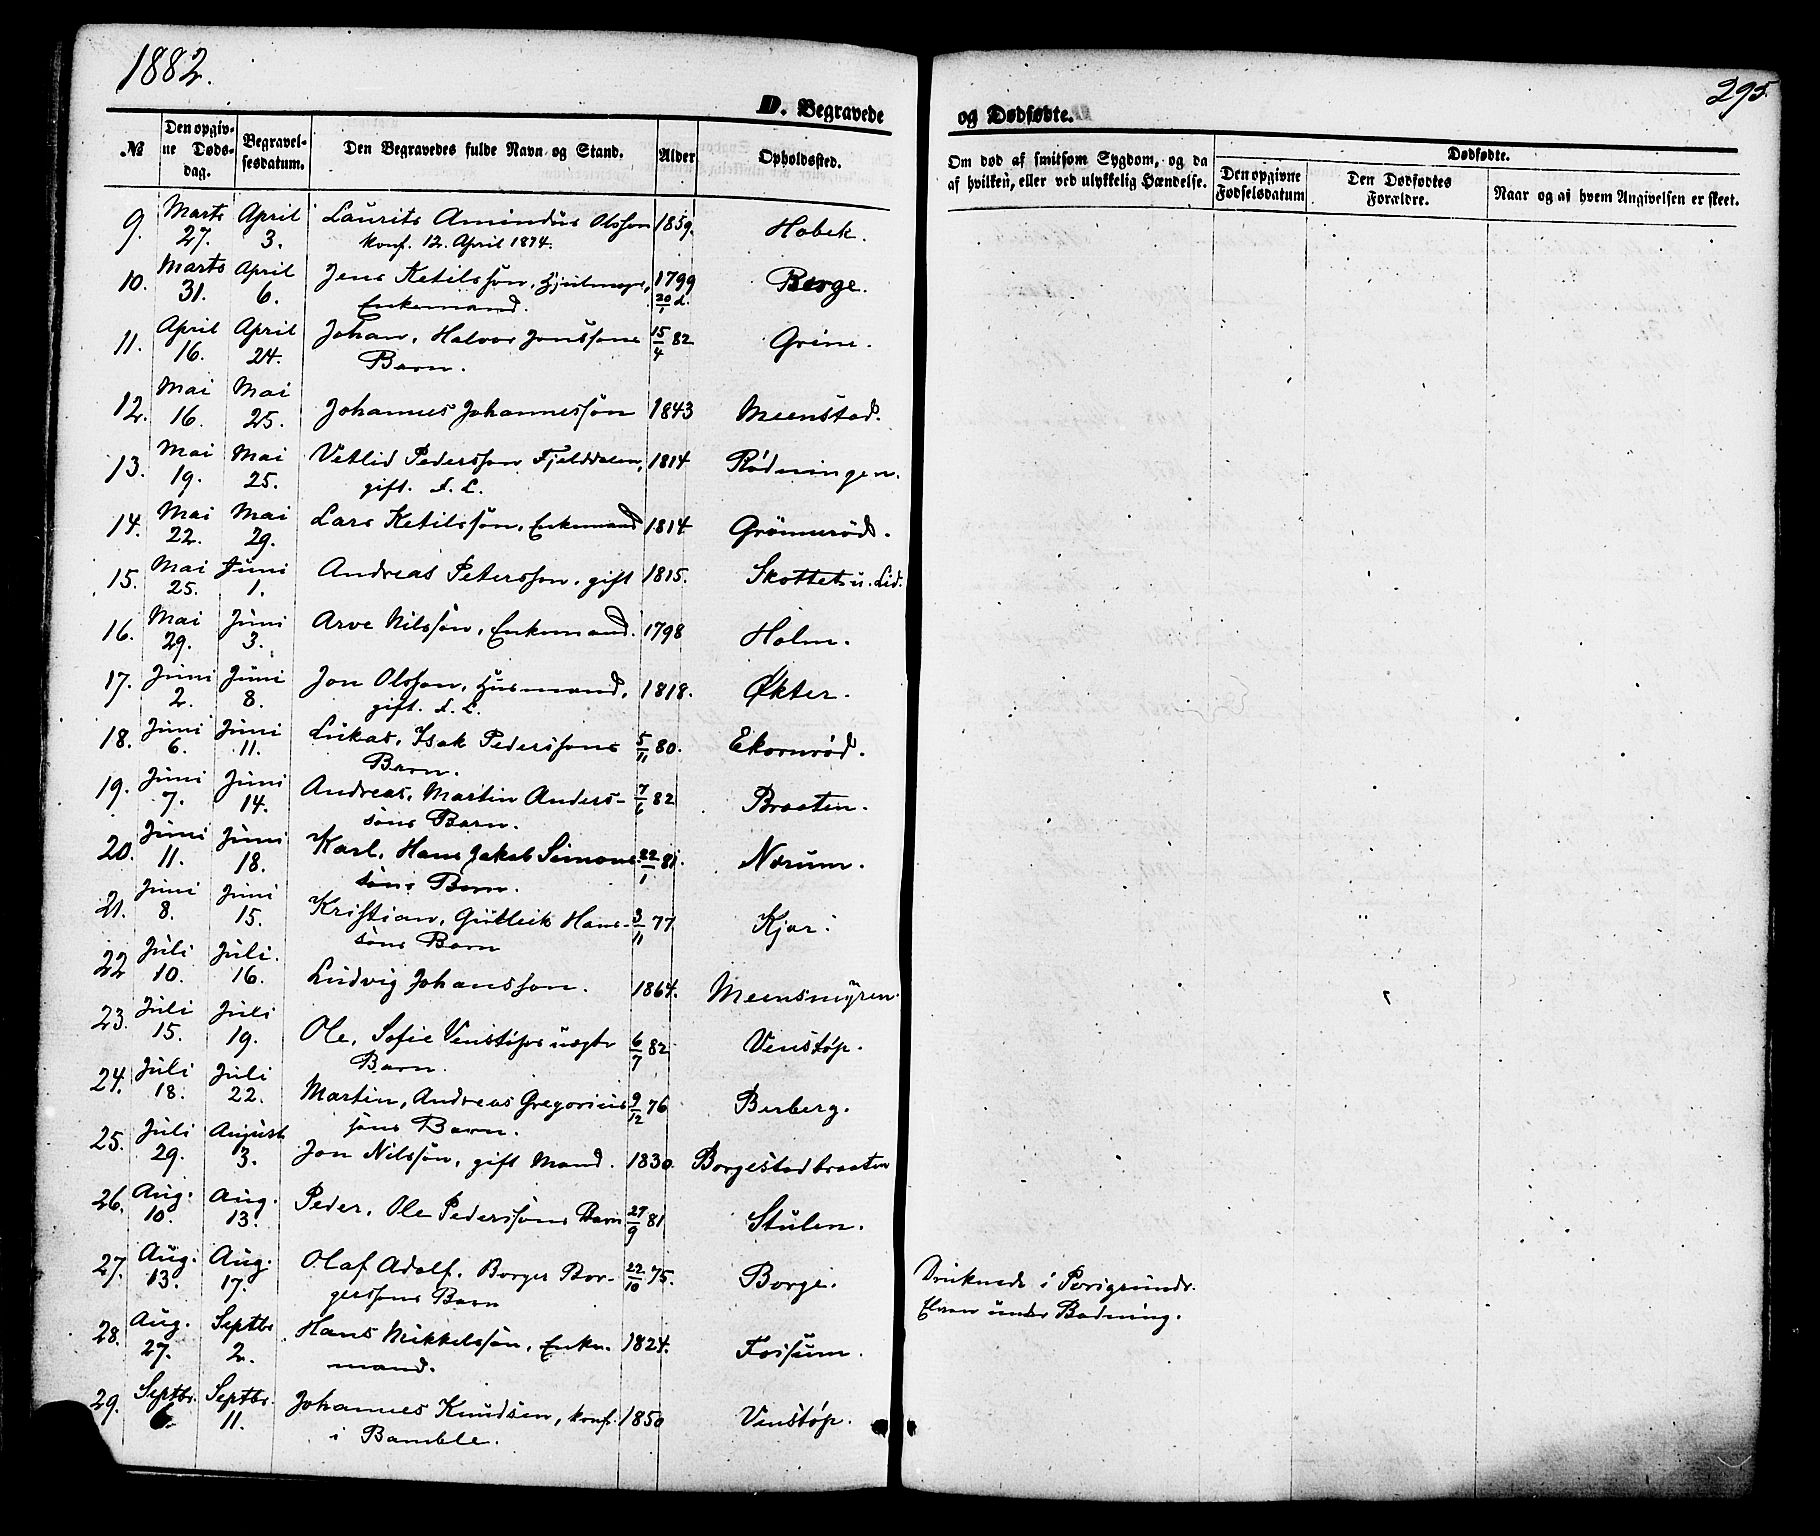 1882.
295.
D. Begravede og Dødfødte.
№ Den opgivne Døds-dag. Begravelsesdatum. Den Begravedes fulde Navn og Stand. Alder Opholdssted.
Om død af smitsom Sygdom, og da af hvilken, eller ved ulykkelig Hændelse.
Dødfødte.
Den opgivne Fødselsdatum Den Dødfødtes Forældre. Naar og af hvem Angivelsen er skeet.
9. Marts 27. April 3. Laurits Amindus Olsson 1859. Hobek.
konf. 12. April 1874.
10. Marts 31. April 6. Jens Ketilssøn, 1799 20/1 d. Borge.
Enkemand.
11. April 16. April 24. Johan, Halvor Jonssøns 15/4 82 Grini.
Barn.
12. Mai 16. Mai 25. Johannes Johannessøn 1843 Meenstad.
13. Mai 19. Mai 25. Vetlid Pederssøn Fjelddalen, 1814 Rødningen.
gift. F. L.
14. Mai 22. Mai 29. Lars Ketilssøn, Enkemand 1814 Grönneröd.
15. Mai 25. Juni 1. Andreas Peterssøn, gift 1815. Skottet u. Lid.
16. Mai 29. Juni 3. Arve Nilssøn, Enkemand. 1798 Holm.
17. Juni 2. Juni 8. Jon Olsson, Husmand, 1818. Økter.
gift. F. L.
18. Juni 6. Juni 11. Lukas, Isak Pederssøns 5/11 80. Ekornrød.
Barn.
19. Juni 7. Juni 14. Andreas, Martin Anders- 7/6 82 Braaten.
søns Barn.
20. Juni 11. Juni 18. Karl, Hans Jakob Simons 22/1 81. Nærum.
søns Barn.
21. Juni 8. Juni 15. Kristian, Gutleik Hans- 3/11 77 Kjær.
søns Barn
22 Juli 10. Juli. 16. Ludvig Johansson. 1864. Meensmyren.
23. Juli 15. Juli 19. Ole, Sofie Venstøps uægte 6/7 82 Venstøp.
Barn.
24. Juli 18. Juli 22. Martin, Andreas Gregorius 9/12 76 Berberg.
søns Barn.
25. Juli 29. August 3. Jon Nilssøn, gift Mand. 1830. Borgestadbraaten
26. Aug. 10. Aug. 13. Peder, Ole Pederssøns Barn 27/9 81 Stulen.
27. Aug. 13. Aug. 17. Olaf Adolf, Borger Bor- 22/10 75. Borge. Druknede i Porsgrunds
gerssøns Barn Elven under Badning.
28. Aug. 27. Septbr 2. Hans Mikkelssøn, Enke- 1824. Fossum.
mand.
29. Septbr. 6. Septbr. 11. Johannes Knudsen, konf. 1850 Venstøp.
i Bamble.